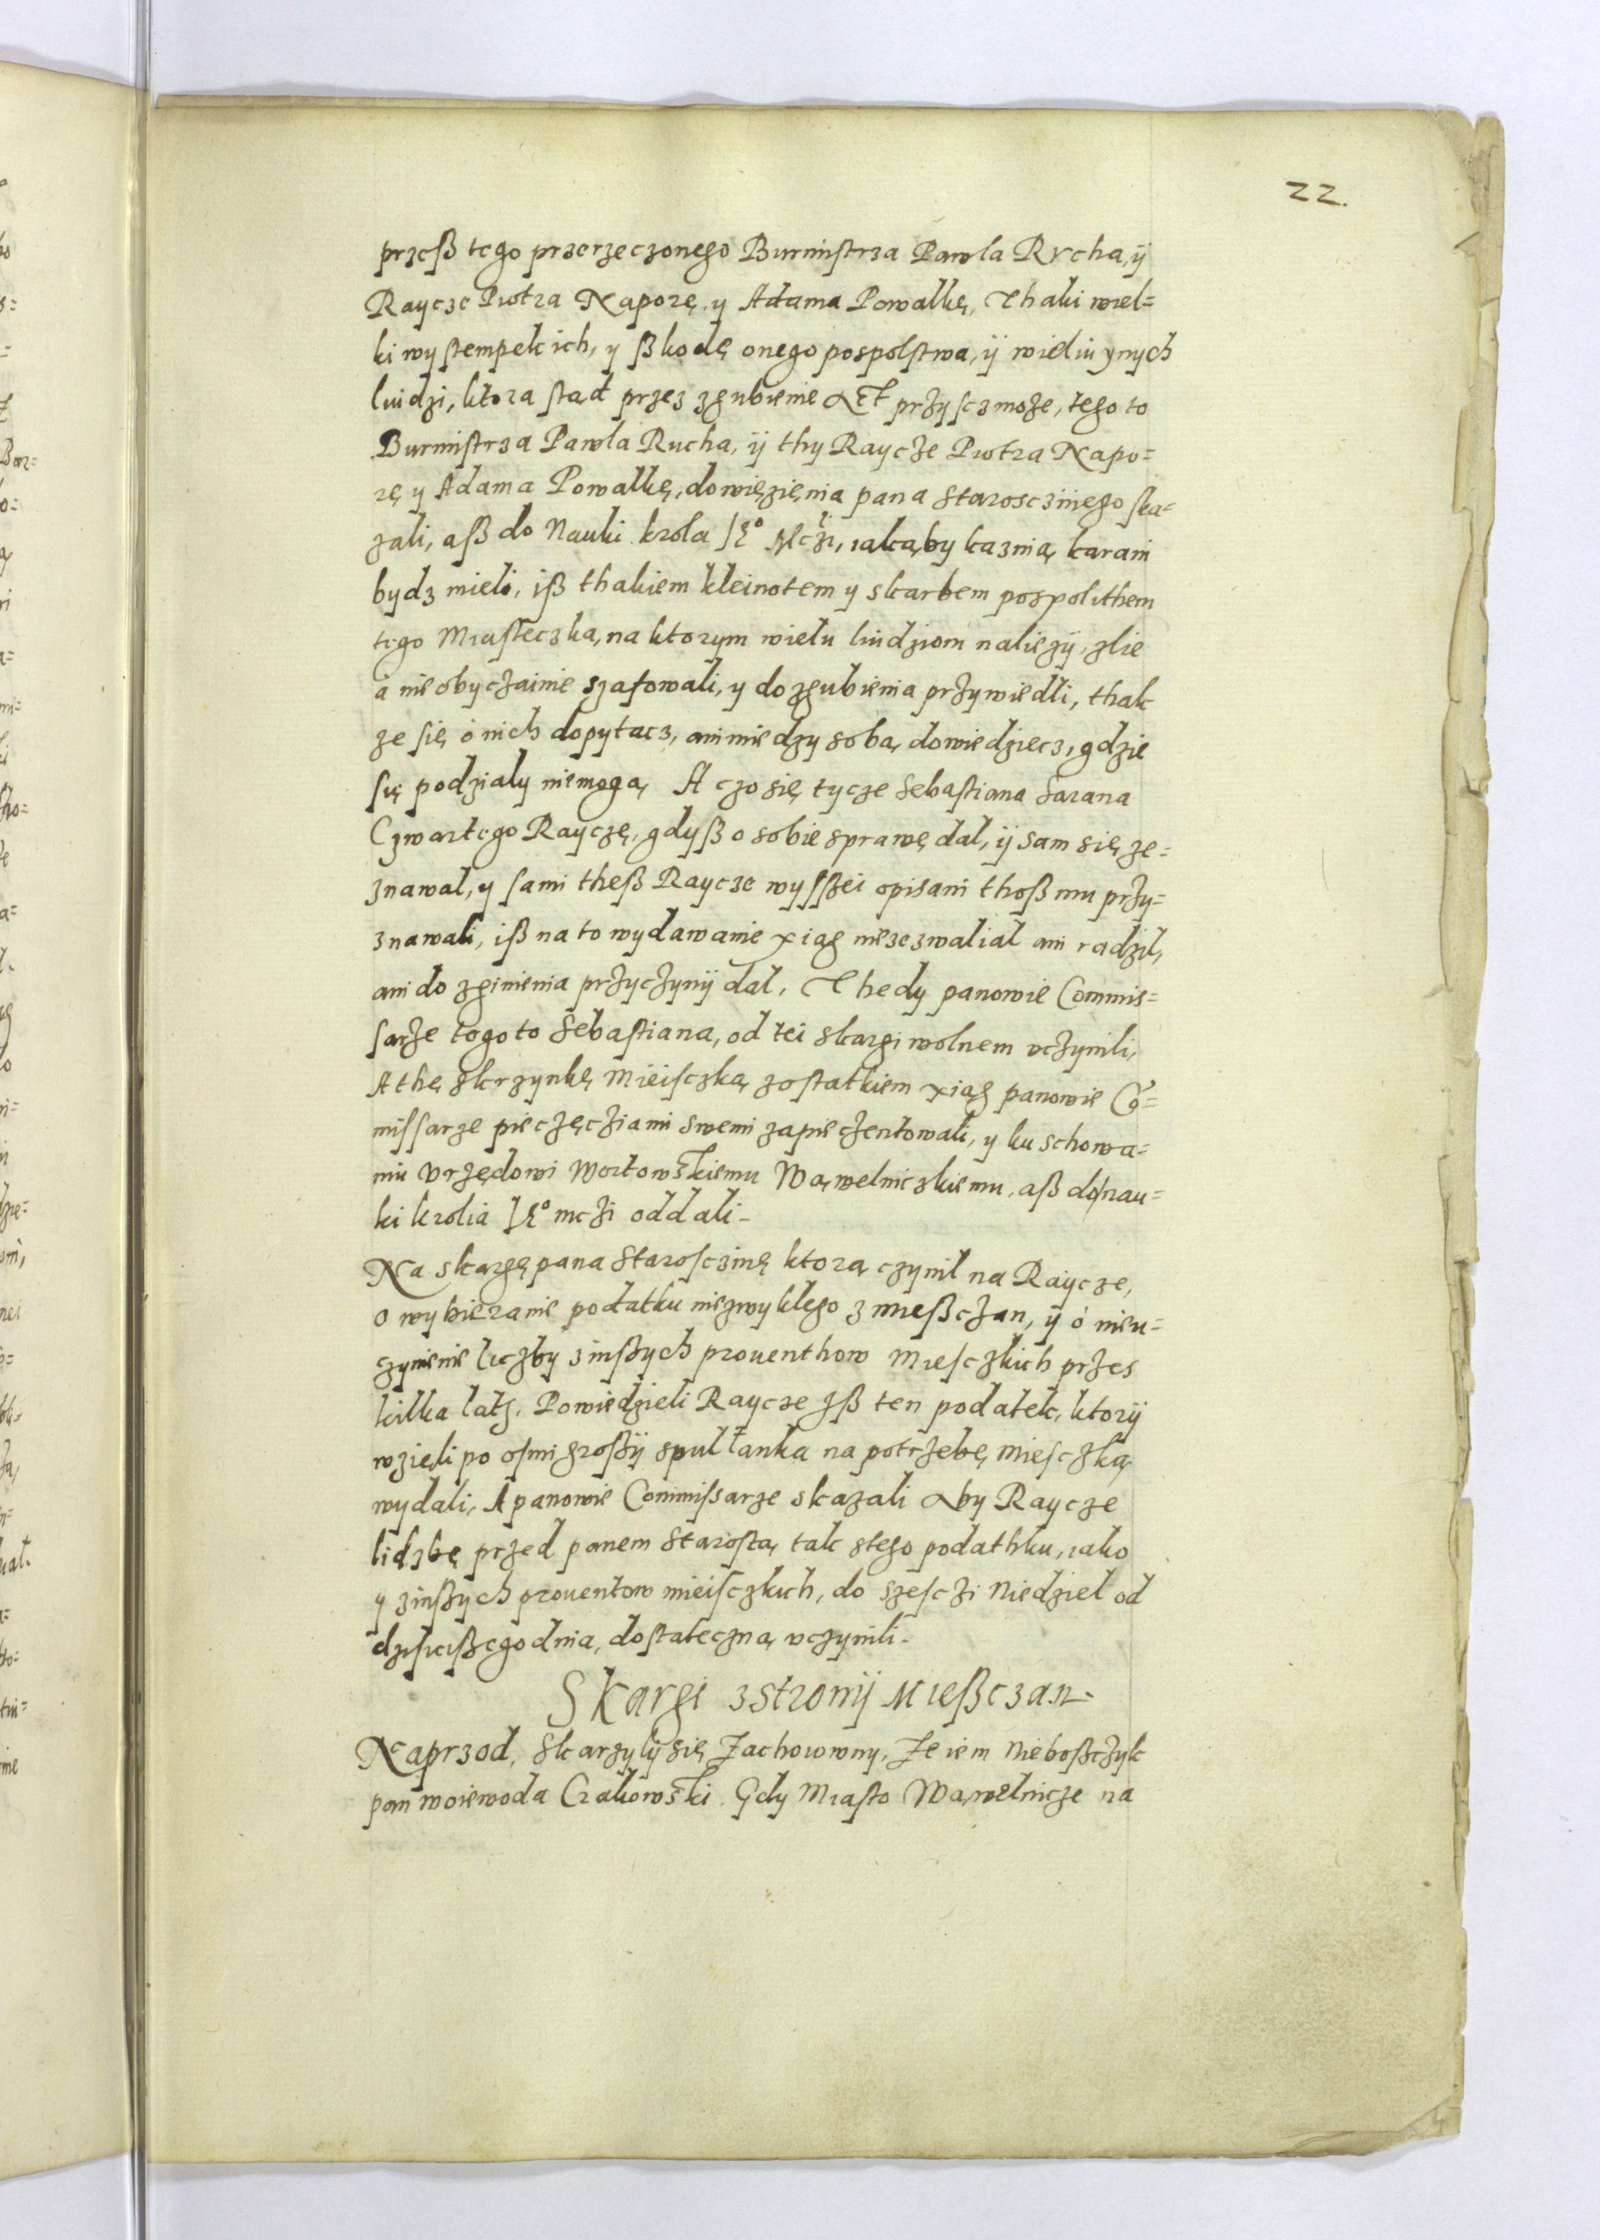 22.
przeß tego przerzeczonego Burmistrza Pawla Rucha, ÿ
Raycze Piotra Naporę, y Adama Powalkę, Thaki wiel=
ki wystempek ich, y ßkodę onego pospolstwa, ÿ wieliu ynych
liudzi, ktora stąd przez zgubienie Akt przysc może, tego to
Burmistrza Pawla Rucha, ÿ thy Raycże Piotra Napo=
rę y Adama Powalkę, do więzięnia pana Starosczinego ska=
zali, aß do Nauki krola Je° Mczi, iakąby kaznią karani
bydz mieli, iß thakiem kleinotem y skarbem pospolithem
tego Miasteczka, na ktorym wielu liudziom należÿ, zlie
a nieobyczainie szafowali, y do zgubienia przywiedli, thak
ze się o nich dopytacz, ani miedzy sobą dowiedziecz, gdzie
się podzialy niemogą, A czo się tycze Sebastiana Sarana
Czwartego Rayczę, gdyß o sobie sprawę dal, ÿ sam się ze=
znawal, y sami theß Raycze wyssżei opisani thoß mu przy=
znawali, iß na to wydawanie xiąg niezezwalial ani radzil,
ani do zginienia przyczynÿ dal, Thedy panowie Commis=
sarze tego to Sebastiana, od tei skargi wolnem uczynili,
A thę skrzynkę Mieisczką zostatkiem xiąg panowie Co=
missarze pieczęcziami swemi zapieczentowali, y ku schowa=
niu Urzędowi Woitowskiemu Wąwelniczkiemu, aß do nau=
ki krolia Je° mczi oddali.
Na skargę pana Starosczinę ktorą czynil na Raycze,
o wybieranie podatku niezwyklego z mießczan, ÿ o nieu=
czynienie liczby z inszych prouenthow Miesczkich przes
kilka lath. Powiedzieli Raycze Iß ten podatek, ktorÿ
wzięli po osmi groszÿ spul łanka na potrzebę miesczką
wydali, A panowie Commissarze skazali Aby Raycze
lidzbę przed panem Starostą tak stego podathku, iako
y z inszych prouentow mieisczkich, do szesczi Niedziel od
dzisieißego dnia, dostateczną uczynili.
Skargi z stronÿ Mießczan.
Naprzod, Skarzyly się Zachowowny, Ze iem Nieboßczyk
pan woiewoda Crakowski Gdy Miasto Wąwelnicze na